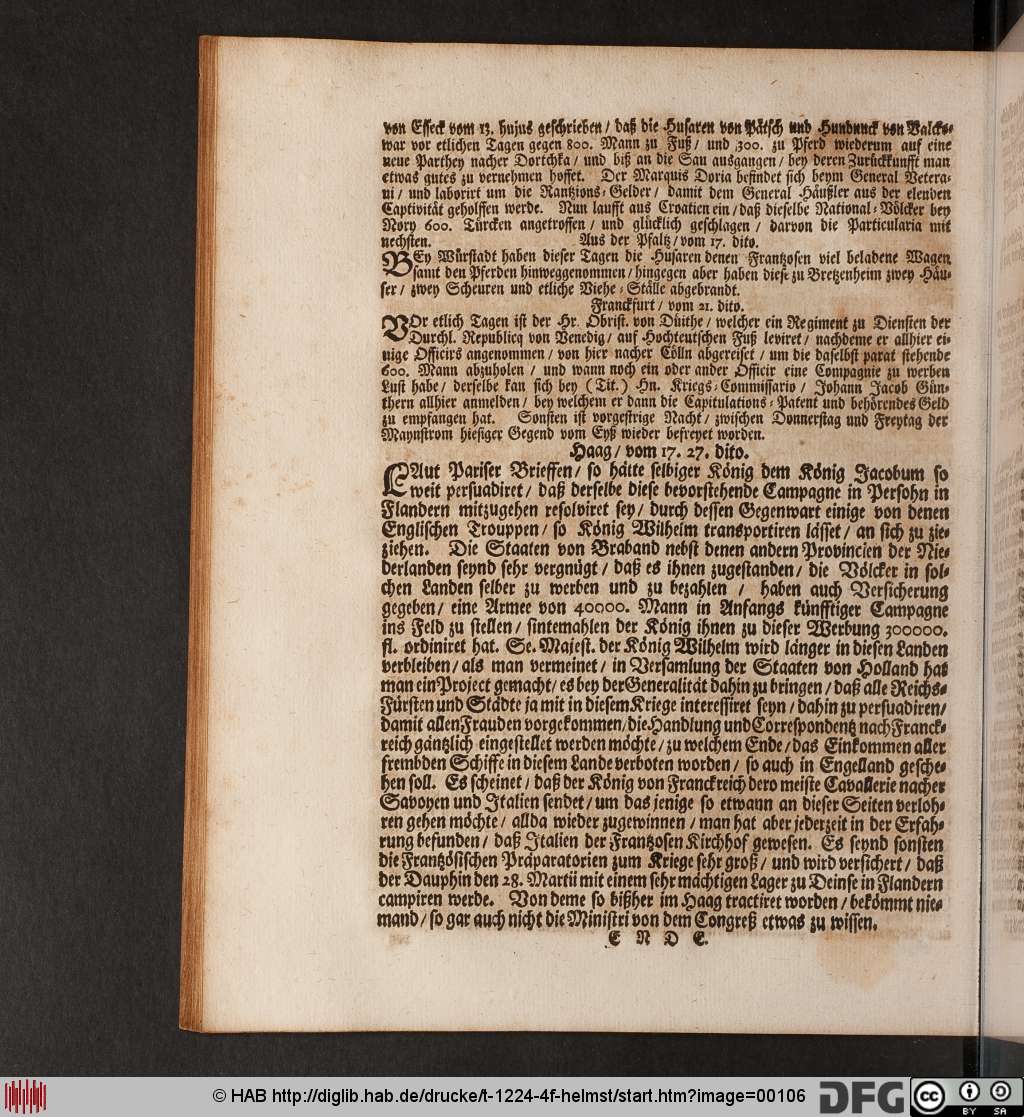 von Esseck vom 13. hujus geschrieben / daß die Husaren von Pätsch und Hundunck von Valcks-
war vor etlichen Tagen gegen 800. Mann zu Fuß / und 300. zu Pferd wiederum auf eine
neue Parthey nacher Dortchka / und biß an die Sau ausgangen / bey deren Zurückkunfft man
etwas gutes zu vernehmen hoffet. Der Marquis Doria befindet sich beym General Vetera-
ni / und laborirt um die Rantzions-Gelder / damit dem General Häußler aus der elenden
Captivität geholffen werde. Nun laufft aus Croatien ein / daß dieselbe National-Völcker bey
Novy 600. Türcken angetroffen / und glücklich geschlagen / darvon die Particularia mit
nechsten. Aus der Pfaltz / vom 17. dito.
BEy Würstadt haben dieser Tagen die Husaren denen Frantzosen viel beladene Wagen
samt den Pferden hinweggenommen / hingegen aber haben diese zu Bretzenheim zwey Häu-
ser / zwey Scheuren und etliche Viehe-Ställe abgebrandt.
Franckfurt / vom 21. dito.
VOr etlich Tagen ist der Hr. Obrist. von Düithe / welcher ein Regiment zu Diensten der
Durchl. Republicq von Venedig / auf Hochteutschen Fuß leviret / nachdeme er allhier ei-
nige Officirs angenommen / von hier nacher Cölln abgereiset / um die daselbst parat stehende
600. Mann abzuholen / und wann noch ein oder ander Officir eine Compagnie zu werben
Lust habe / derselbe kan sich bey (Tit.) Hn. Kriegs-Commissario / Johann Jacob Gün-
thern allhier anmelden / bey welchem er dann die Capitulations-Patent und behörendes Geld
zu empfangen hat. Sonsten ist vorgestrige Nacht / zwischen Donnerstag und Freytag der
Maynstrom hiesiger Gegend vom Eyß wieder befreyet worden.
Haag / vom 17. 27. dito.
LAut Pariser Brieffen / so hätte selbiger König dem König Jacobum so
weit persuadiret / daß derselbe diese bevorstehende Campagne in Persohn in
Flandern mitzugehen resolviret sey / durch dessen Gegenwart einige von denen
Englischen Trouppen / so König Wilhelm transportiren lässet / an sich zu zie-
ziehen. Die Staaten von Braband nebst denen andern Provincien der Nie-
derlanden seynd sehr vergnügt / daß es ihnen zugestanden / die Völcker in sol-
chen Landen selber zu werben und zu bezahlen / haben auch Versicherung
gegeben / eine Armee von 40000. Mann in Anfangs künfftiger Campagne
ins Feld zu stellen / sintemahlen der König ihnen zu dieser Werbung 300000.
fl. ordiniret hat. Se. Majest. der König Wilhelm wird länger in diesen Landen
verbleiben / als man vermeinet / in Versamlung der Staaten von Holland hat
man ein Project gemacht / es bey der Generalität dahin zu bringen / daß alle Reichs-
Fürsten und Städte ja mit in diesem Kriege interessiret seyn / dahin zu persuadiren /
damit allen Frauden vorgekommen / die Handlung und Correspondentz nach Franck-
reich gäntzlich eingestellet werden möchte / zu welchem Ende / das Einkommen aller
frembden Schiffe in diesem Lande verboten worden / so auch in Engelland gesche-
hen soll. Es scheinet / daß der König von Franckreich dero meiste Cavallerie nacher
Savoyen und Italien sendet / um das jenige so etwann an dieser Seiten verloh-
ren gehen möchte / allda wieder zugewinnen / man hat aber jederzeit in der Erfah-
rung befunden / daß Italien der Frantzosen Kirchhof gewesen. Es seynd sonsten
die Frantzösischen Präparatorien zum Kriege sehr groß / und wird versichert / daß
der Dauphin den 28. Martii mit einem sehr mächtigen Lager zu Deinse in Flandern
campiren werde. Von deme so bißher im Haag tractiret worden / bekömmt nie-
mand / so gar auch nicht die Ministri von dem Congreß etwas zu wissen.
E N D E.
© HAB http://diglib.hab.de/drucke/t-1224-4f-helmst/start.htm?image=00106
DFG
cc
BY SA